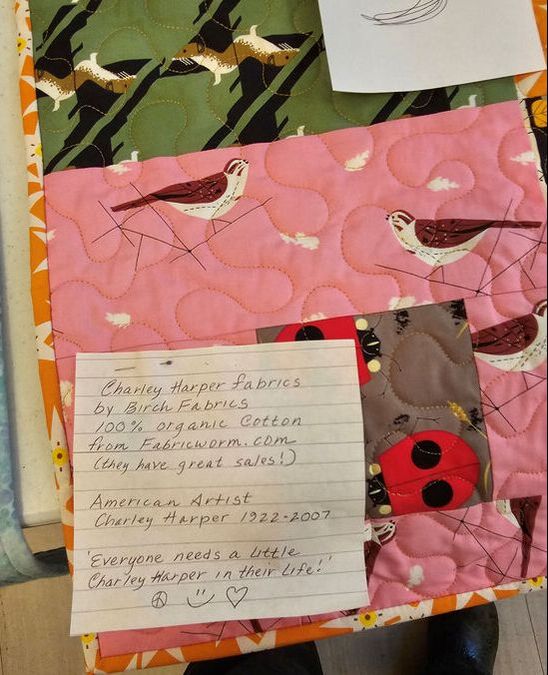 Charley Harper fabrics
by Birch Fabrics
100% organic Cotton
from Fabricworm.com
(they have great sales!)
American Artist
Charley Harper 1922-2007
'Everyone needs a little
Charley Harper in their Life!'